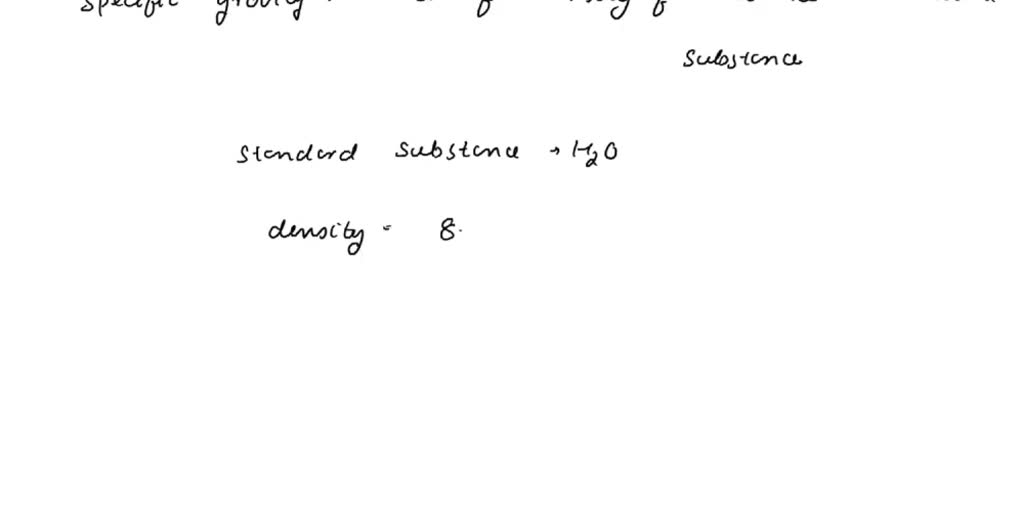 specific gravity
substance
standard substance → H₂O
density = 8.